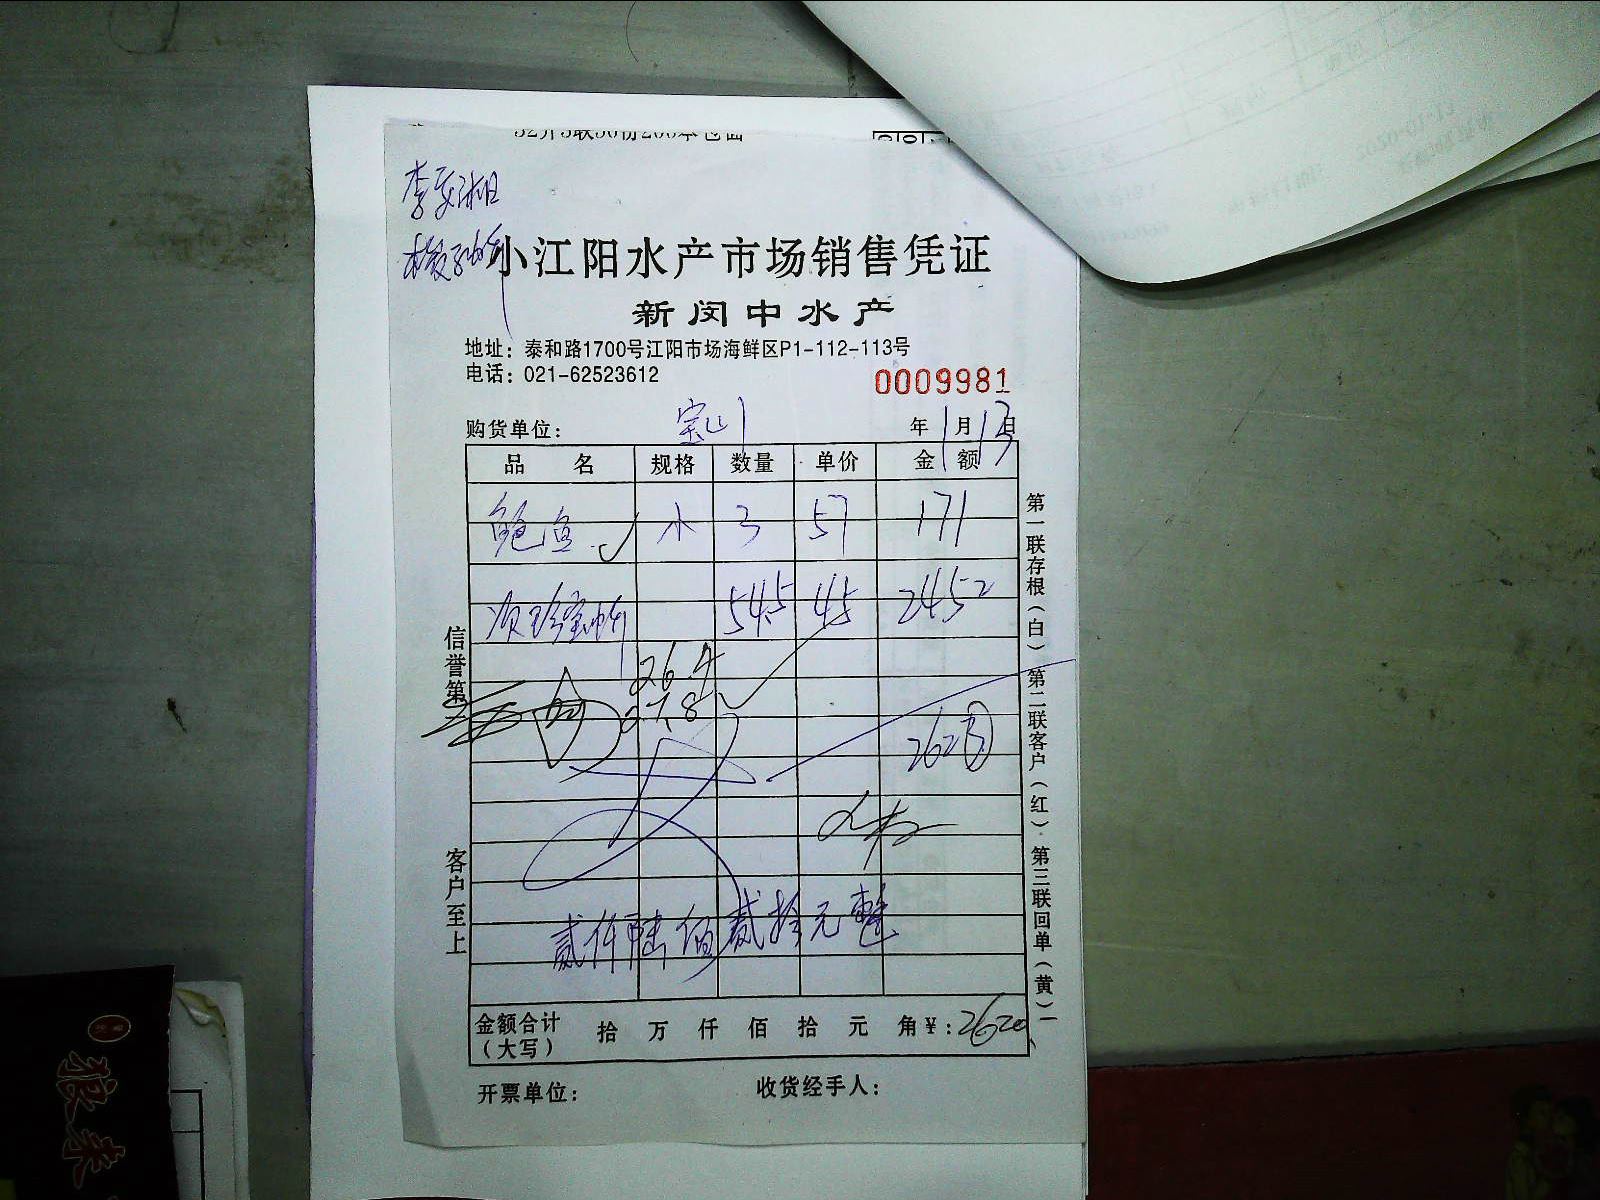 小江阳水产市场销售凭证
新闵中水产
地址：泰和路1700号江阳市场海鲜区P1-112-113号
电话：021-62523612
0009981
购货单位： 宝山 年 1 月 13 日
品 名 规格 数量 单价 金 额
鲍鱼 小 3 57 171
54.5 45 2452
26.4
27.8
262
贰仟陆佰贰拾元整
金额合计 拾 万 仟 佰 拾 元 角 ¥：2620
（大写）
开票单位： 收货经手人：
信誉第一
客户至上
第一联存根（白）第二联客户（红）第三联回单（黄）